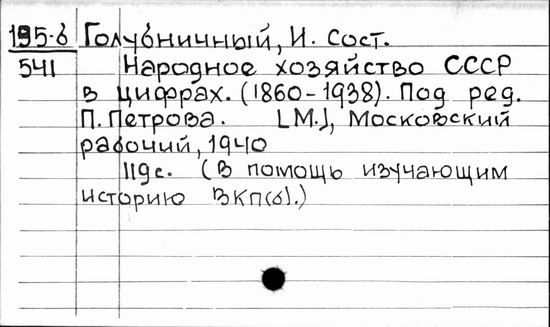 195-б Голубничный, И. Сост.
541 Народное хозяйство СССР
в цифрах. (1860-1938). Под ред.
П. Петрова. [М.], Московский
рабочий, 1940
119с. (В помощь изучающим
историю ВКП(б).)